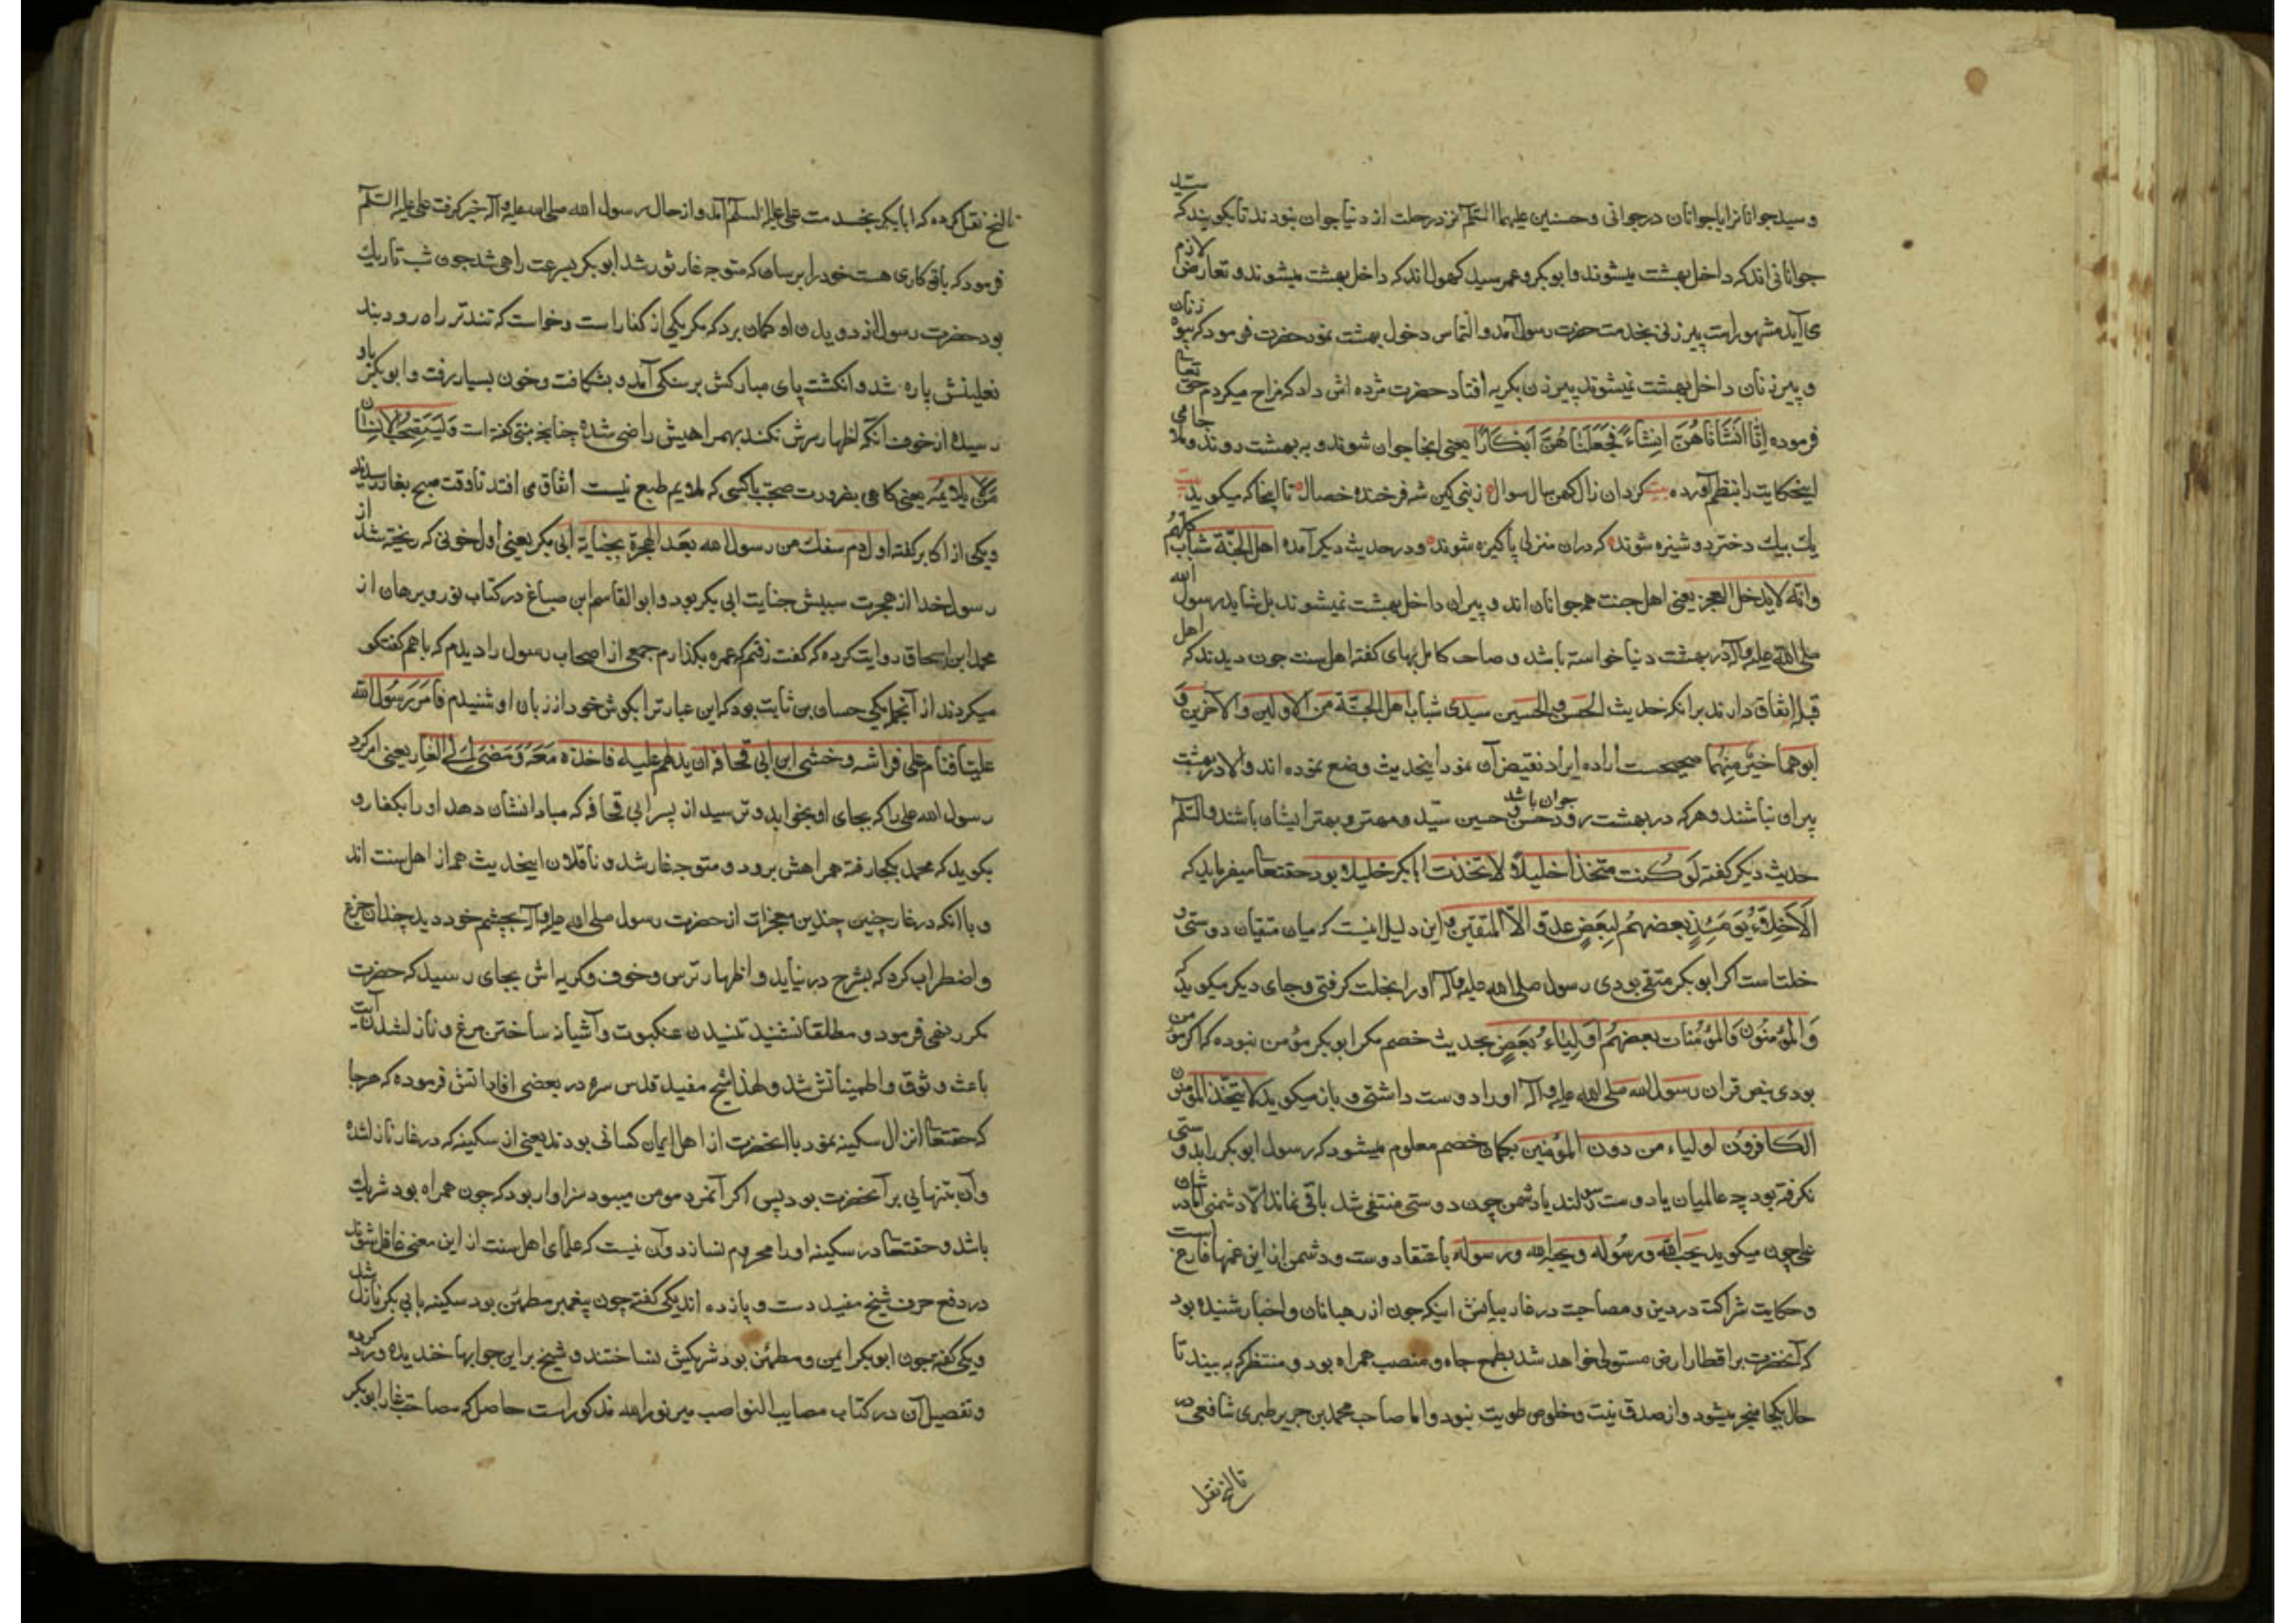 و سید جوانانرا با جوانان در جوانی و حسنین علیهما السّلم نیز در رحلت از دنیا جوان نبودند تا بکویند که سیّد
جوانانی‌اند که داخل بهشت میشوند و ابوبکر و عمر سید کهول‌اند که داخل بهشت میشوند و تعارض لازم
می آید مشهور است پیرزنی بخدمت حضرت رسول آمد و التماس دخول بهشت نمود حضرت فرمود که زنان
و پیرزنان داخل بهشت نمیشوند پیرزن بکریه افتاد حضرت مژده اش داد که مزاح میکردم حق تعالی
فرموده اِنّا اَنشَأناهُنَّ اِنشاءً فَجَعَلناهُنَّ اَبکارًا یعنی انجا جوان شوند و به بهشت روند و ملا جامی
اینحکایت را بنظم آورده بیت کرد ان زال کهن سال سوال زنبی کین شه فرخنده خصال تا اینجا که میکوید بیت
یک بیک دختر دوشیزه شوند که دران منزل پاکیزه شوند و در حدیث دیکر آمده اهل الجنّة شباب کلّهم
وانّه لایدخل العجز یعنی اهل جنت هم جوانان اند و پیران داخل بهشت نمیشوند بل شاید رسول الله
صلی الله علیه وآله در بهشت دنیا خواسته باشد و صاحب کامل بهای کفته اهل سنت چون دیدند که اهل
قبله اتفاق دارند برانکه حدیث الحسن والحسین سیدی شباب اهل الجنّة من الاولین والآخرین وَ
ابوهما خیرٌ مِنهُما صحیحست اراده ایراد نقیض آن نمود اینحدیث وضع نموده اند والا در بهشت
پیران نباشند و هرکه در بهشت رود جوان باشد و حسن و حسین سیّد و مهتر و بهتر ایشان باشند والسّلم
حدیث دیکر کفته لَو کُنت متخذا خلیلًا لاتخذت ابابکر خلیلا و بود حقتعالی میفرماید که
اَلاَخِلّاءُ یَومَئِذٍ بعضهُم لِبَعضٍ عدوّ الّا المتقین و این دلیل اینست که میان متقیان دوستی و
خلتاست اکر ابوبکر متقی بودی رسول صلی الله علیه وآله اورا بخلت کرفتی و جای دیکر میکوید که
وَالمُؤمنُون وَالمُؤمنات بعضهُم اَولِیاءُ بَعضٍ بحدیث خصم مکر ابوبکر مؤمن نبوده که اکر مؤمن
بودی بنص قران رسول الله صلی الله علیه وآله اورا دوست داشتی و باز میکوید لایتّخذ المؤمنون
الکافرون اولیاء من دون المؤمنین بکمان خصم معلوم میشود که رسول ابوبکر را بدوستی
نکرفته بود چه عالمیان یا دوست رسولند یا دشمن چون دوستی منتفی شد باقی نماند الّا دشمنی امّا در شان
علی چون میکوید یحب الله ورسُوله ویحبه الله ورسوله باعتقاد دوست و دشمن از این غمها فارغ است
و حکایت شراکت در دین و مصاحبت در غار بیانش اینکه چون از رهبانان و احبار شنیده بود
که آنحضرت بر اقطار ارض مستولی خواهد شد بطمع جاه و منصب همراه بود و منتظر که به بیند تا
حال بکجا منجر میشود و از صدق نیت و خلوص طویت نبود و اما صاحب محمد بن جریر طبری شافعی در
تاریخ نقل
تاریخ نقل کرده که ابابکر بخدمت علی علیه السلم آمد و از حال رسول الله صلی الله علیه وآله خبر کرفت علی علیه السّلم
فرمود که باو کاری هست خود را برسان که متوجه غار ثور شد ابوبکر بسرعت راهی شد چون شب تاریک
بود حضرت رسول از دویدن او کمان برد که مکر یکی از کفار است و خواست که تندتر راه رود بند
نعلینش پاره شد و انکشت پای مبارکش بر سنکی آمد و بشکافت و خون بسیار رفت و ابوبکر باو
رسیده از خوف آنکه اظهار سرش نکند بهمراهیش راضی شده چنانچه متنبی کفته است وَلَیَستَصحِبُ الانسان
مَن لا یلایمُه یعنی کاهی بضرورت صحبت با کسی که ملایم طبع نیست اتفاق می افتد تا وقت صبح بغار رسیدند
و یکی از اکابر کفته اول دم سفک من رسول الله بعد الهجرة بجنایة ابی بکر یعنی اول خونی که ریخته شد از
رسول خدا از هجرت سببش جنایت ابی بکر بود و ابوالقاسم ابن صباغ در کتاب نور و برهان از
محمد ابن اسحاق روایت کرده که کفت رفتم که عمره بکذارم جمعی از اصحاب رسول را دیدم که باهم کفتکو
میکردند از آنجمله یکی حسان بن ثابت بود که این عبارت را بکوش خود از زبان او شنیدم فَاَمَرَ رَسُول الله
علیّا فنام علی فراشه وخشی ابن ابی قحافه ان یدلهم علیه فاخذه مَعَهُ وَمَضی اِلَی الغار یعنی امر کرد
رسول الله علی را که بجای او بخوابد و ترسید از پسر ابی قحافه که مبادا نشان دهد اورا بکفار و
بکوید که محمد بکجا رفته همراهش برود و متوجه غار شد و ناقلان اینحدیث هم از اهل سنت اند
و با آنکه در غار چنین چندین معجزات از حضرت رسول صلی الله علیه وآله بچشم خود دید چندان جزع
و اضطراب کرد که بشرح در نیاید و اظهار ترس و خوف و کریه اش بجای رسید که حضرت
مکرر نهی فرمود و مطلقا نشنید تنیدن عنکبوت و آشیانه ساختن مرغ و نازل شدن آیت
باعث وثوق و اطمینانش نشد و لهذا شیخ مفید قدس سره در بعضی افاداتش فرموده که هرجا
که حقتعالی انزال سکینه نمود با انحضرت از اهل ایمان کسانی بودند یعنی از سکینه که در غار نازل شده
وآن بتنهایی بر آنحضرت بود پس اکر آنمرد مومن میبود سزاوار بود که چون همراه بود شریک
باشد و حقتعالی در سکینه اورا محروم نسازد وآن نیست که علمای اهل سنت از این معنی غافل شوند
در دفع حرف شیخ مفید دست و پا زده اند یکی کفته چون پیغمبر مطمئن بود سکینه بابی بکر نازل شد
و یکی کفته چون ابوبکر ایمن و مطمئن بود شریکش نساختند و شیخ بر این جوابها خندیده و رد کرده
و تفصیل آن در کتاب مصایب النواصب میر نورالله مذکور است حاصل که مصاحبت غار ابوبکر